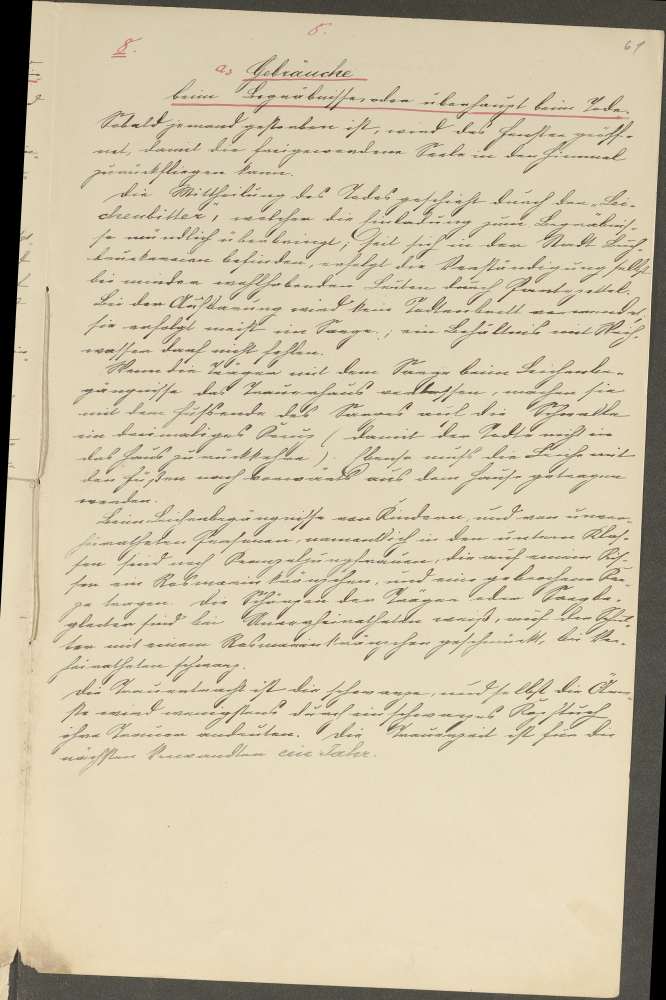 8.
8.
61
a, Gebräuche
beim Begräbnisse, oder überhaupt beim Tode.
Sobald jemand gestorben ist, wird das Fenster geöff-
net, damit die freigewordene Seele in den Himmel
zurückfliegen kann.
Die Mittheilung des Todes geschieht durch den „Lei-
chenbitter", welcher die Einladung zum Begräbnis-
se mündlich überbringt; Seit sich in der Stadt Buch-
druckereien befinden, erfolgt die Verständigung selbst
bei minder wohlhabenden Leuten durch Partezettel.
Bei der Aufbarung wird kein Todtenbrett verwendet,
sie erfolgt meist im Sarge.; ein Behältnis mit Weih-
wasser darf nicht fehlen.
Wenn die Träger mit dem Sarge beim Leichenbe-
gängnisse das Trauerhaus verlassen, machen sie
mit dem Fußende des Sarges auf die Schwelle
ein dreimaliges Kreuz (damit der Todte nicht in
das Haus zurückkehre). Ebenso muß die Leiche mit
den Füßen nach vorwärts aus dem Hause getragen
werden.
Beim Leichenbegängnisse von Kindern, und von unver-
heiratheten Personen, namentlich in den untern Klas-
sen sind noch Kranzeljungfrauen, die auf einem Kis-
sen ein Rosmarinkränzchen, und eine gebrochene Ker-
ze tragen. Die Schürzen der Träger oder Sargbe-
gleiter sind bei Unverheiratheten weiß, auf der Schul-
ter mit einem Rosmarinkränzchen geschmückt, bei Ver-
heiratheten schwarz.
Die Trauertracht ist die schwarze, und selbst die Ärm-
ste wird wenigstens durch ein schwarzes Kopftuch
ihre Trauer andeuten. Die Trauerzeit ist für die
nächsten Verwandten ein Jahr.